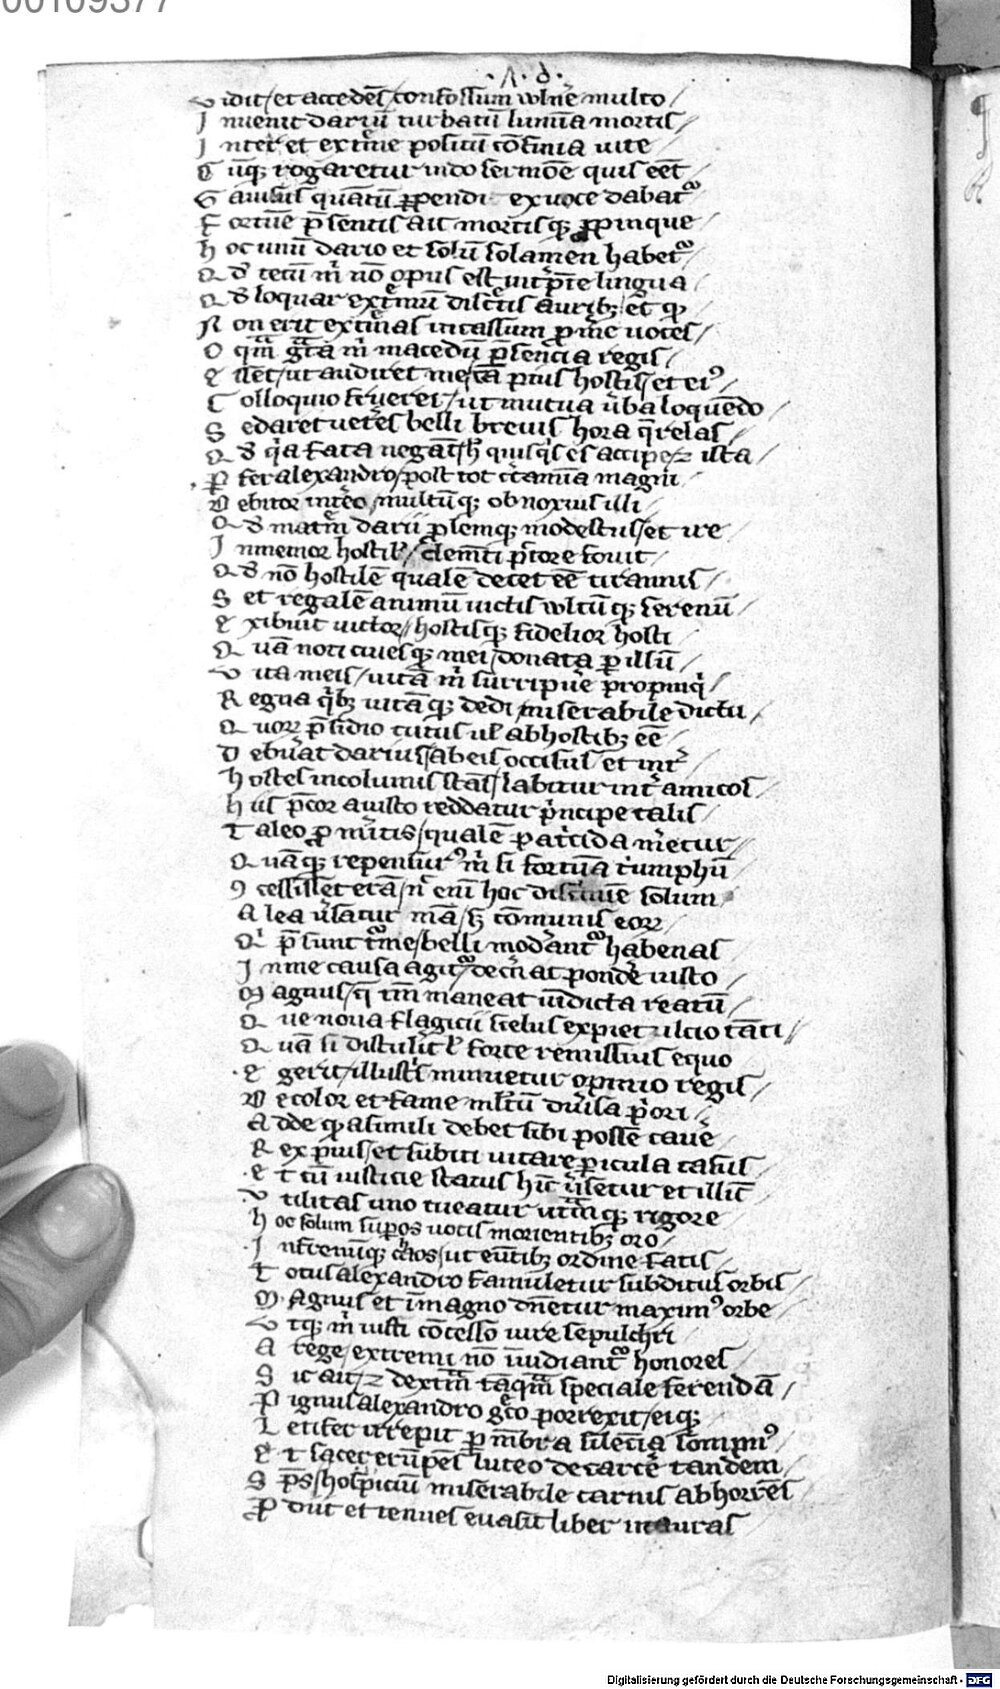 00109377
·Λ·d·
V idit/et accedēs/confossum vlnẽe multo/
I nuenit dariū turbatū lumīa mortis/
I nter et extˢme positū cōfinia uite
C ūq; rogaretur indo sermoē quis eēt/
G auisus quātū ꝑpendi ex uoce dabatᷣ
F ortūe p̄sentis ait mortisq; ꝓpinque
h oc unū dario et solū solamen habetᷣ
Q d̕ tecū m̕ nō opus est int̕pte lingua
Q d̕ loquar extˢmū discᷤtis aurib; et ꝙ
N on erit extˢmas incassum ꝓmᷤe uoces/
O qᷓm gᷓta m̕ macedū p̄sencia regis/
E ss;et/ut audiret mesta pius hostis/et ei᷒/
C olloquio frueret/ut mutua ūba loquēdo/
S edaret uetˢes belli breuis hora q̄relas/
Q d̕ qᷤa fata negāt/h̕ quisqᷤs es accipe/⁊ ista/
P fer alexandro/post tot c̄tamīa magni
D ebitor intᷤeo/multūq; obnoxius illi/
Q d̕ matˢm darii ꝓlemq; modestus/et ire
I nmemor hostilˢ/clemēti pᷤtore fouit/
Q d̕ nō hostilē qualē decet eē tirannis/
S et regalē animū uictis vltūq; serenū/
E xibuit uictor//hostisq; fidelior hosti
Q uā noti ciuesq; mei/donata ꝑ illū/
V ita meis/uitā m̕ surripuᷤe propinqᷤ/
R egna qᷤb; uitāq; dedi/miserabile dictu/
Q uoꝝ p̄sidio tutus ul̕ ab hostib; eē
D ebuᷤat darius/ab eis occisus et intˢ
h ostes incolumis stās/labitur intˢ amicos/
h iis pᷤcor a iusto reddatur pᷤncipe talis
T aleo ꝓ mᷤitis/qualē patˢcida mᷤetur/
Q uāq; repensur᷒ m̕ si fortūa tˢumphū
ꝯ cessiss;et erā/n̕ eni hoc discᷤmīe solum
A lea ūsatur mā/s; cōmunis eoꝝ
Qᷤ p̄sunt tˢme/belli modᷤantᷣ habenas
I n me causa agitᷣ/decᷤnat pondᷤe iusto
M agnus/q̄ tm̄ maneat uīdicta reatū/
Q ue noua flagicii scelus expiet ulcio tāti//
Q uā si distulˢit lˢ forte remissius equo
E gerit/illustˢs minuetur opinio regis/
D ecolor et fame ml̕tū diūsa pᷤori/
A dde ꝙ a simili debet sibi posse cauᷤe
R ex pius/et subiti uitare pericula casus
E t cū iusticie status hīc ūsetur et illic
V tilitas uno tueatur utˢmq; rigore
h oc solum supos uocis morientib; oro/
I nfˢenūq; chaos/ut eūtib; ordine fatis/
T otus alexandro famuletur subditus orbis/
M agnus et ī magno dn̄etur maxim᷒ orbe/
V tq; m̕ iusti cōcesso iure sepulchri
A rege/extremi nō īuidiantᷣ honores/
S ic ait/⁊ dextˢm tāqᷓm speciale ferendā/
P ignus alexandro gᷤeco porrexit/eiq;
L etifer irrepit ꝑ mēbra silēcia sōmpn᷒
E t sacer erūpēs luteo de carcᷤe tandem
S p̄s/hospiciū miserabile carnis abhorrēs
P dut et tenues euasit liber in auras
Digitalisierung gefördert durch die Deutsche Forschungsgemeinschaft - DFG